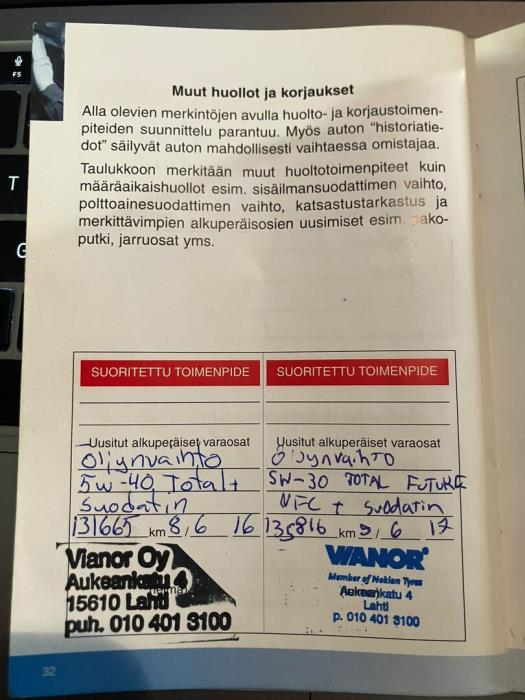 Muut huollot ja korjaukset
Alla olevien merkintöjen avulla huolto- ja korjaustoimen-
piteiden suunnittelu parantuu. Myös auton "historiatie-
dot" säilyvät auton mahdollisesti vaihtaessa omistajaa.
Taulukkoon merkitään muut huoltotoimenpiteet kuin
määräaikaishuollot esim. sisäilmansuodattimen vaihto,
polttoainesuodattimen vaihto, katsastustarkastus ja
merkittävimpien alkuperäisosien uusimiset esim. pako-
putki, jarruosat yms.
SUORITETTU TOIMENPIDE
Uusitut alkuperäiset varaosat
Öljynvaihto
5W-40 Total +
Suodatin
131665 km 8/6 16
Vianor Oy
Aukeankatu 4
15610 Lahti
puh. 010 401 3100
SUORITETTU TOIMENPIDE
Uusitut alkuperäiset varaosat
Öljynvaihto
5W-30 TOTAL FUTURE
NFC + Suodatin
135816 km 9/6 17
VIANOR
Member of Nokian Tyres
Aukeankatu 4
Lahti
p. 010 401 3100
32
F5
T
G